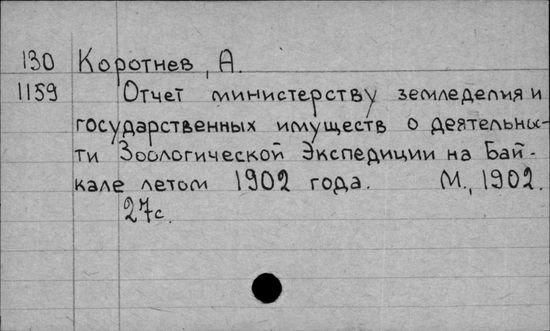 130 Коротнев, А.
1159 Отчет министерству земледелия и
государственных имуществ о деятельнос-
ти Зоологической Экспедиции на Бай-
кале летом 1902 года. М., 1902.
27с.